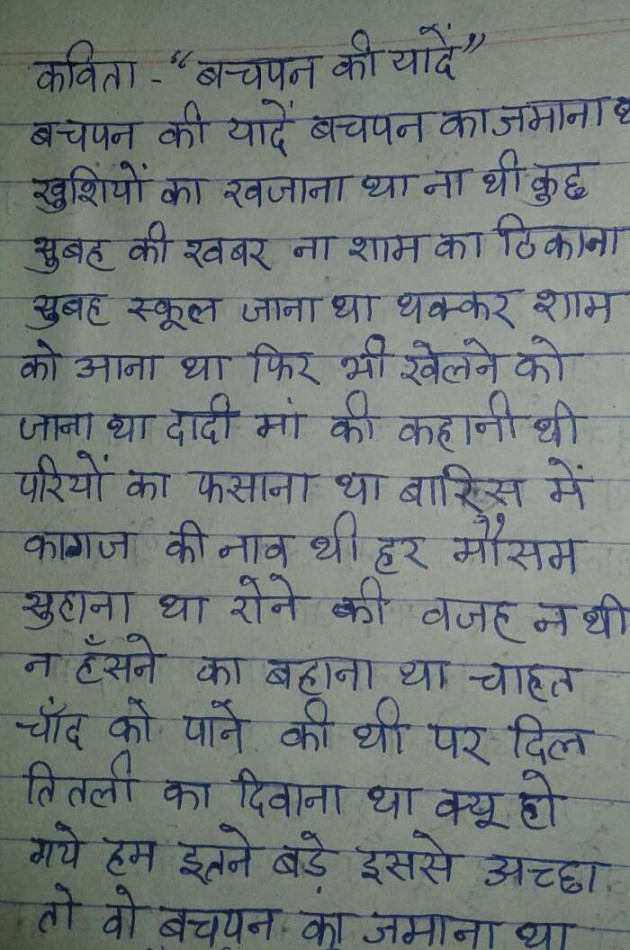 कविता - “बचपन की यादें”
बचपन की यादें बचपन का जमाना
खुशियों का खजाना था ना थी कुछ
सुबह की खबर ना शाम का ठिकाना
सुबह स्कूल जाना था थक्कर शाम
को आना था फिर भी खेलने को
जाना था दादी मां की कहानी थी
परियों का फसाना था बारिस में
कागज की नाव थी हर मौसम
सुहाना था रोने की वजह न थी
न हँसने का बहाना था चाहत
चाँद को पाने की थी पर दिल
तितली का दिवाना था क्यू हो
गये हम इतने बड़े इससे अच्छा
तो वो बचपन का जमाना था